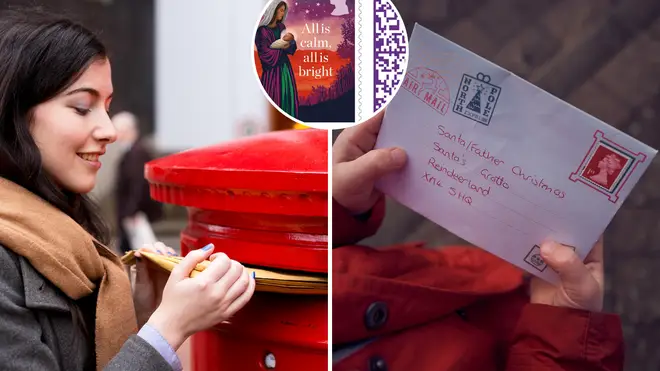 All is
calm,
all is
bright
AIR MAIL
NORTH
POLE
Santa/Father Christmas
Santa's Grotto
Reindeerland
XM4 5HQ